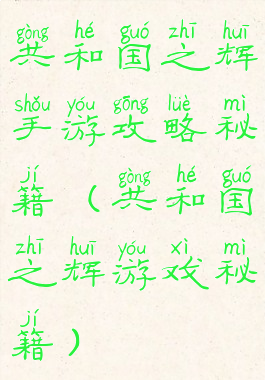 gòng hé guó zhī huī
共和国之辉
shǒu yóu gōng lüè mì
手游攻略秘
jí gòng hé guó
籍（共和国
zhī huī yóu xì mì
之辉游戏秘
jí
籍）